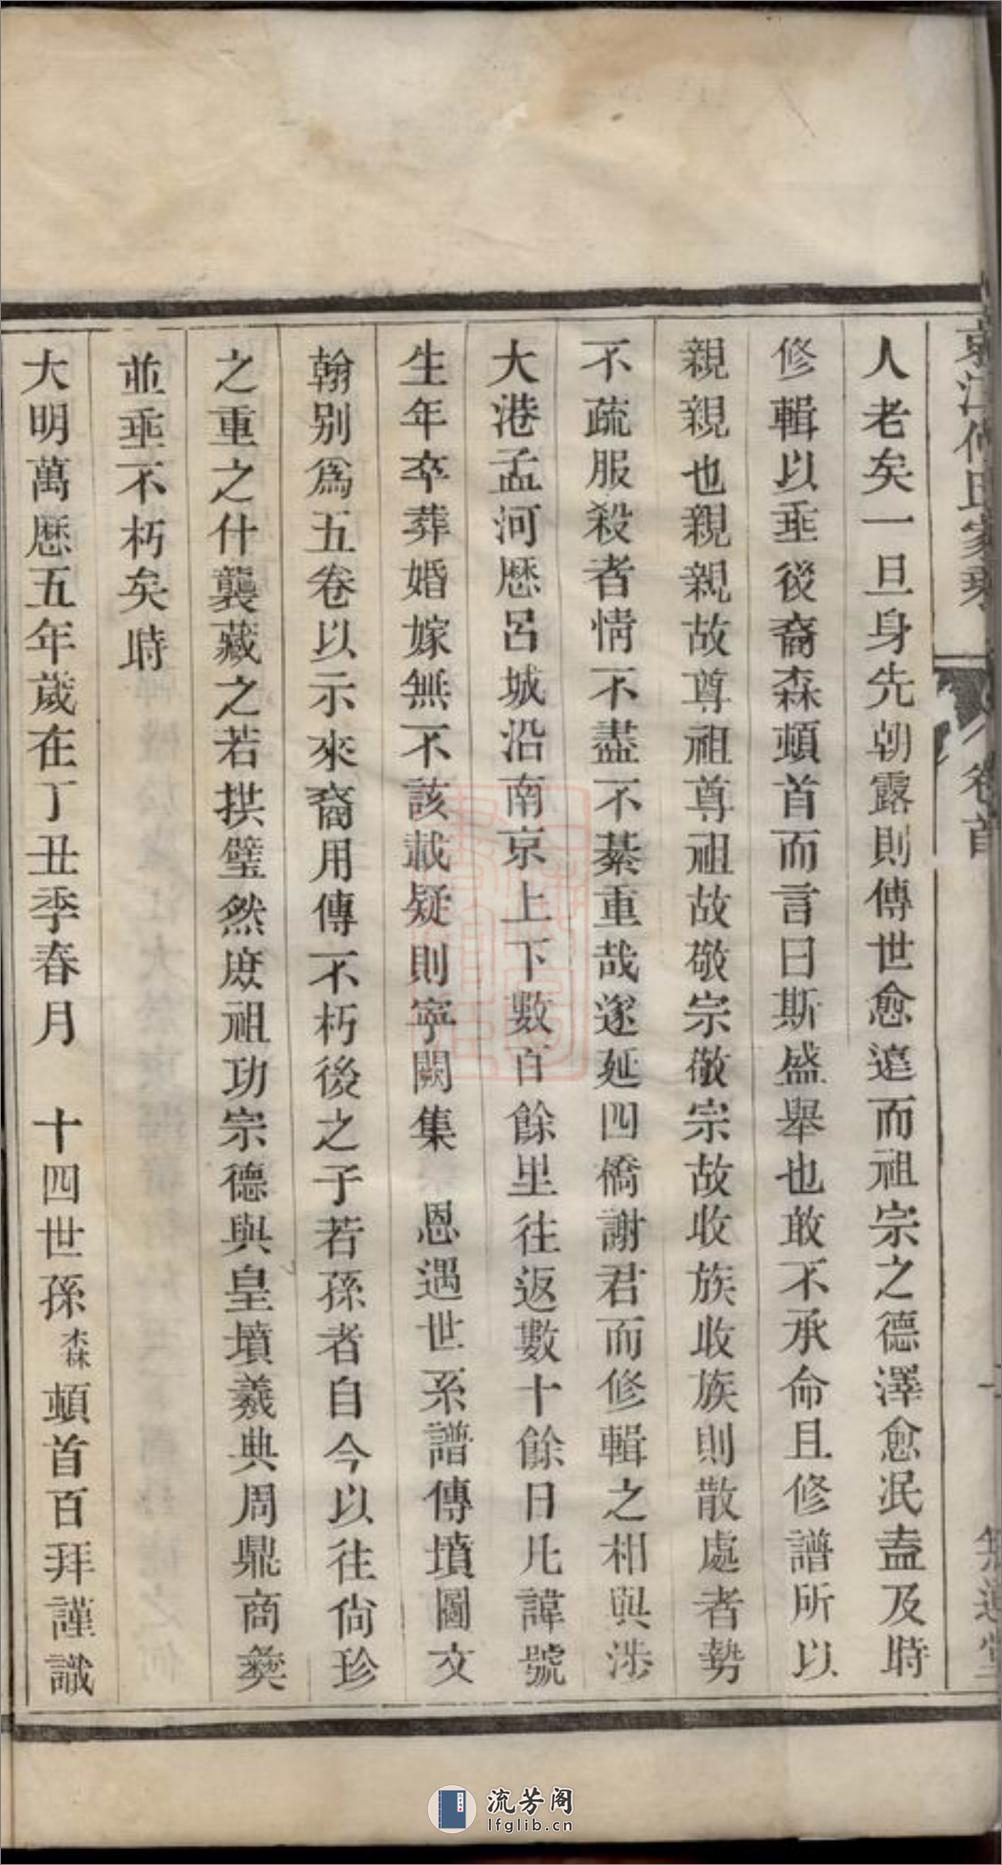 人老矣一旦身先朝露則傳世愈遠而祖宗之德澤愈泯盍及時
修輯以垂後裔森頓首而言曰斯盛舉也敢不承命且修譜所以
親親也親親故尊祖尊祖故敬宗敬宗故收族收族則散處者勢
不疏服殺者情不盡不綦重哉遂延四橋謝君而修輯之相與涉
大港孟河歷呂城沿南京上下數百餘里往返數十餘日凡諱號
生年卒葬婚嫁無不該載疑則寧闕集 恩遇世系譜傳墳圖文
翰別為五卷以示來裔用傳不朽後之子若孫者自今以往尙珍
之重之什襲藏之若拱璧然庶祖功宗德與皇墳羲典周鼎商彜
並垂不朽矣時
大明萬歷五年歲在丁丑季春月 十四世孫森頓首百拜謹識
卷首
流芳阁
lfglib.cn